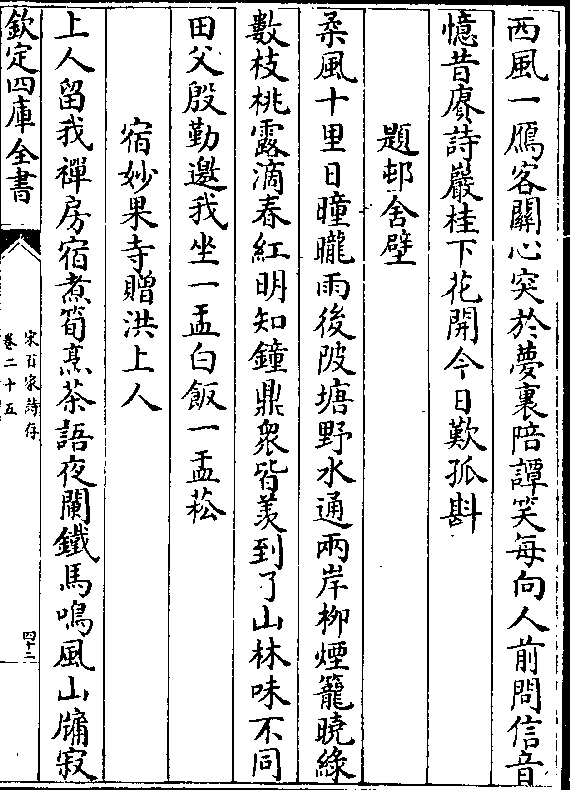 西風一鴈客關心突於夢裏陪譚笑每向人前問信音
憶昔賡詩巖桂下花開今日歎孤斟
題邨舍壁
柔風十里日曈曨雨後陂塘野水通兩岸柳煙籠曉綠
數枝桃露滴春紅明知鐘鼎衆皆羡到了山林味不同
田父殷勤邀我坐一盂白飯一盂菘
宿妙果寺贈洪上人
上人留我禪房宿煮筍烹茶語夜闌鐵馬鳴風山牖寂
欽定四庫全書
宋百家詩存
卷二十五
四十二